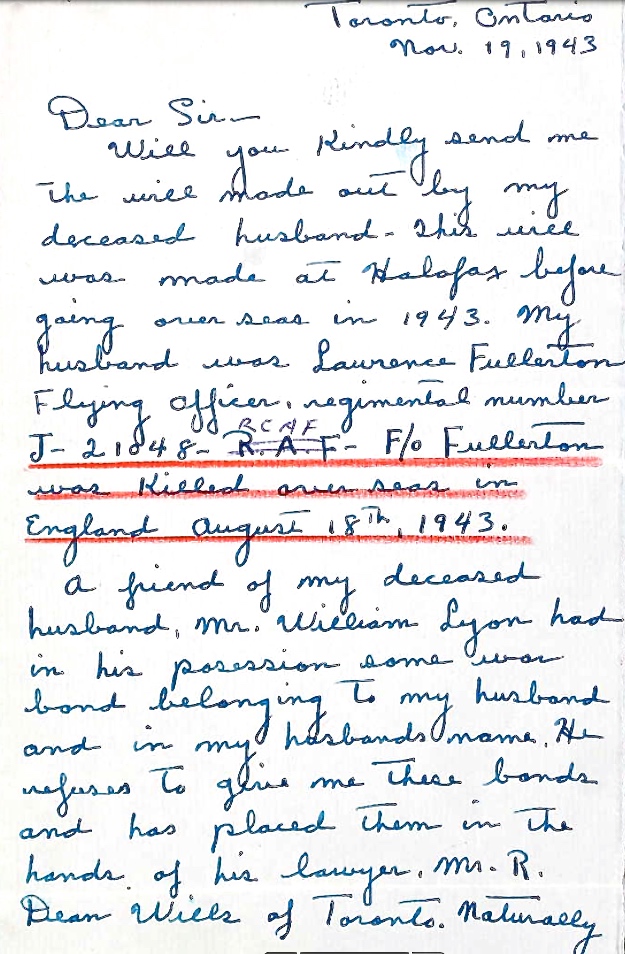 Toronto, Ontario
Nov. 19, 1943
Dear Sir—
Will you Kindly send me
the will made out by my
deceased husband - This will
was made at Halofax before
going over seas in 1943. My
husband was Laurence Fullerton
Flying Officer, regimental number
RCAF
J-21848- R.A.F- F/o Fullerton
was Killed over seas in
England August 18th, 1943.
A friend of my deceased
husband, Mr. William Lyon had
in his posession some war
bond belonging to my husband
and in my husbands name. He
refuses to give me these bonds
and has placed them in the
hands of his lawyer, Mr. R.
Dean Wills of Toronto. Naturally